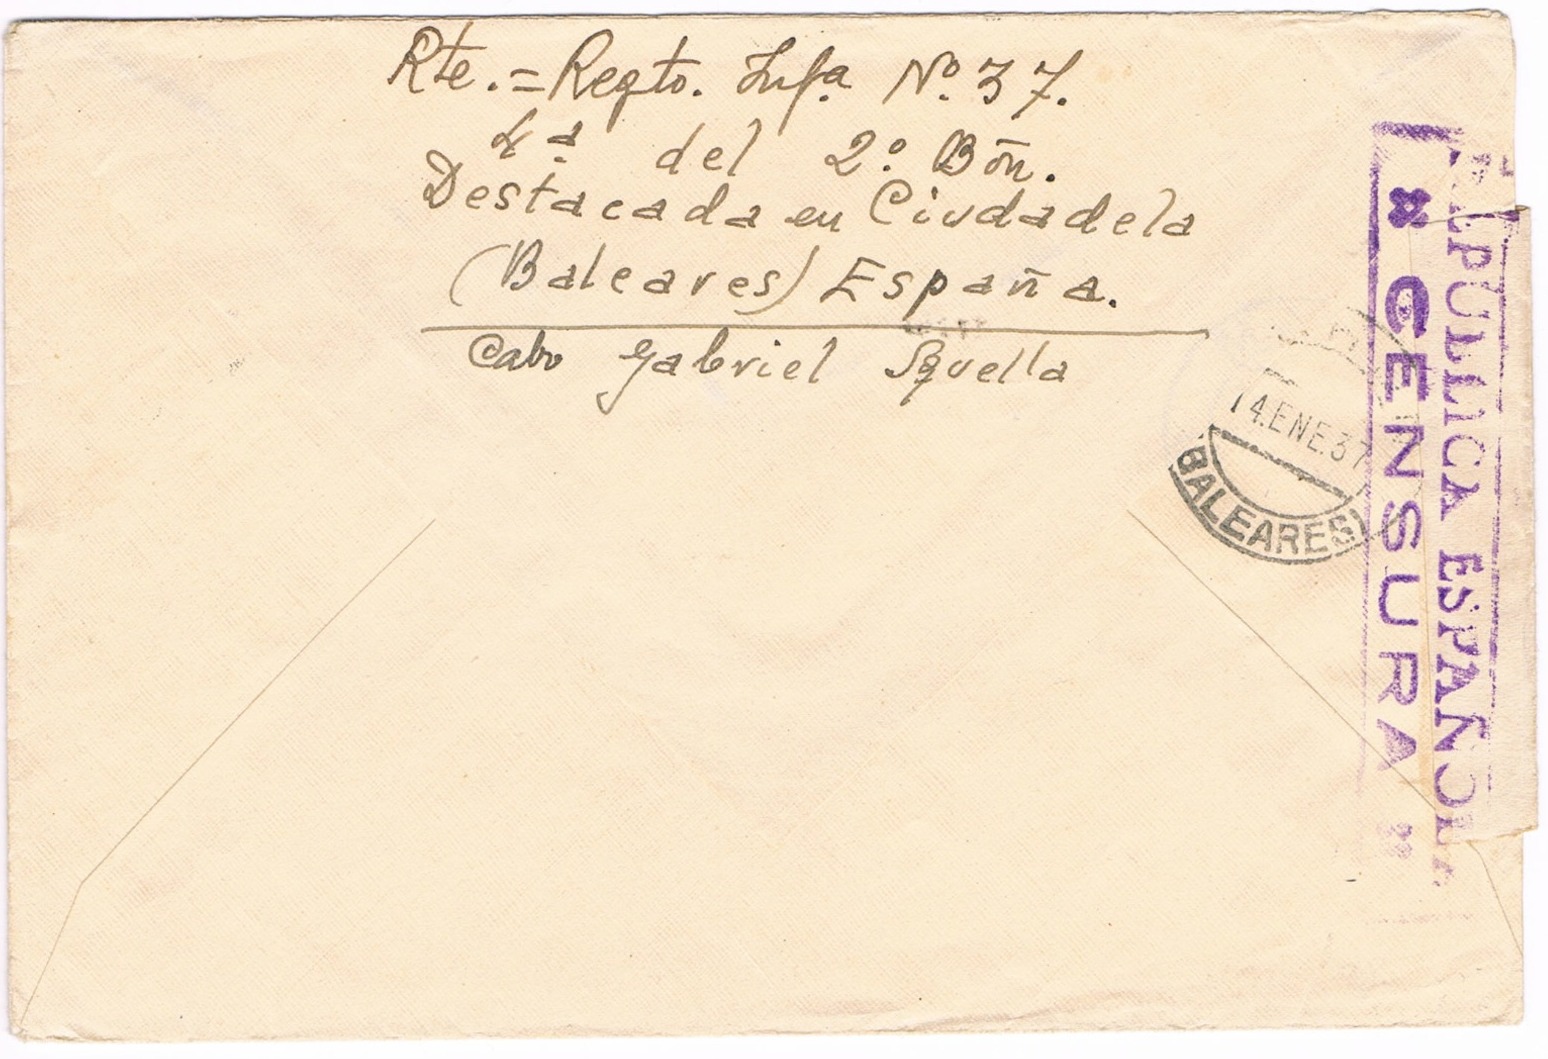 Rte.=Regto. Infª Nº 37.
4ª del 2º Bōn.
Destacada en Ciudadela
(Baleares) España.
Cabo Gabriel Squella
14.ENE.37
(BALEARES)
REPUBLICA ESPAÑOLA
CENSURA